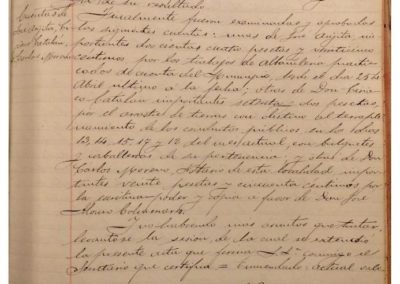 de su resultado.
Cuentas de
José Arjita, Ci-
Catalán,
Carlos Moreno
Igualmente fueron examinadas y aprobadas
las siguientes cuentas: unas de José Arjita, im-
portantes doscientas cuatro pesetas y
centimos por los trabajos de practi-
cados de cuenta del Municipio, desde el día 25 de
Abril ultimo a la fecha; otras de Don
Catalán importantes setenta y dos pesetas,
por el arrastre de tierras con destino al terraple-
namiento de los conductos públicos en los días
13, 14, 15, 17 y 18 del mes actual, con
y caballerias de su pertenencia; y otras de Don
Carlos Moreno, Notario de esta localidad impor-
tantes veinte pesetas y cincuenta centimos por
la escritura-poder y copia a favor de Don José
Y no habiendo mas asuntos que tratar,
levantose la sesión de la cual se extendió
la presente acta que forma S.Sª conmigo el
Secretario que certifico = Enmendado: actual vale